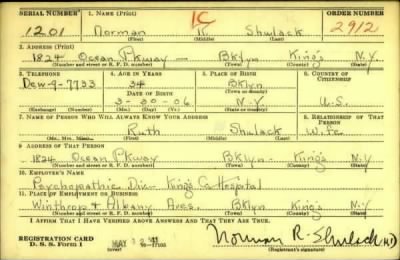 SERIAL NUMBER 1. NAME (Print) ORDER NUMBER
1C
1201 Norman R. Shulack 2912
(First) (Middle) (Last)
2. ADDRESS (Print)
1824 Ocean Pkway — Bklyn King's N.Y
(Number and street or R. F. D. number) (Town) (County) (State)
3. TELEPHONE 4. AGE IN YEARS 5. PLACE OF BIRTH 6. COUNTRY OF CITIZENSHIP
Dew-9-7733 34 Bklyn
DATE OF BIRTH (Town or county)
3-30-06 N.Y U.S.
(Exchange) (Number) (Mo.) (Day) (Yr.) (State or country)
7. NAME OF PERSON WHO WILL ALWAYS KNOW YOUR ADDRESS 8. RELATIONSHIP OF THAT PERSON
Ruth Shulack Wife
(Mr., Mrs., Miss) (First) (Middle) (Last)
9. ADDRESS OF THAT PERSON
1824 Ocean Pkway Bklyn - King's N.Y
(Number and street or R. F. D. number) (Town) (County) (State)
10. EMPLOYER'S NAME
Psychopathic Div - King's Co Hospital
11. PLACE OF EMPLOYMENT OR BUSINESS
Winthrop & Albany Aves. Bklyn King's N.Y.
(Number and street or R. F. D. number) (Town) (County) (State)
I AFFIRM THAT I HAVE VERIFIED ABOVE ANSWERS AND THAT THEY ARE TRUE.
REGISTRATION CARD
D. S. S. Form 1 Norman R. Shulack
(Registrant's signature)